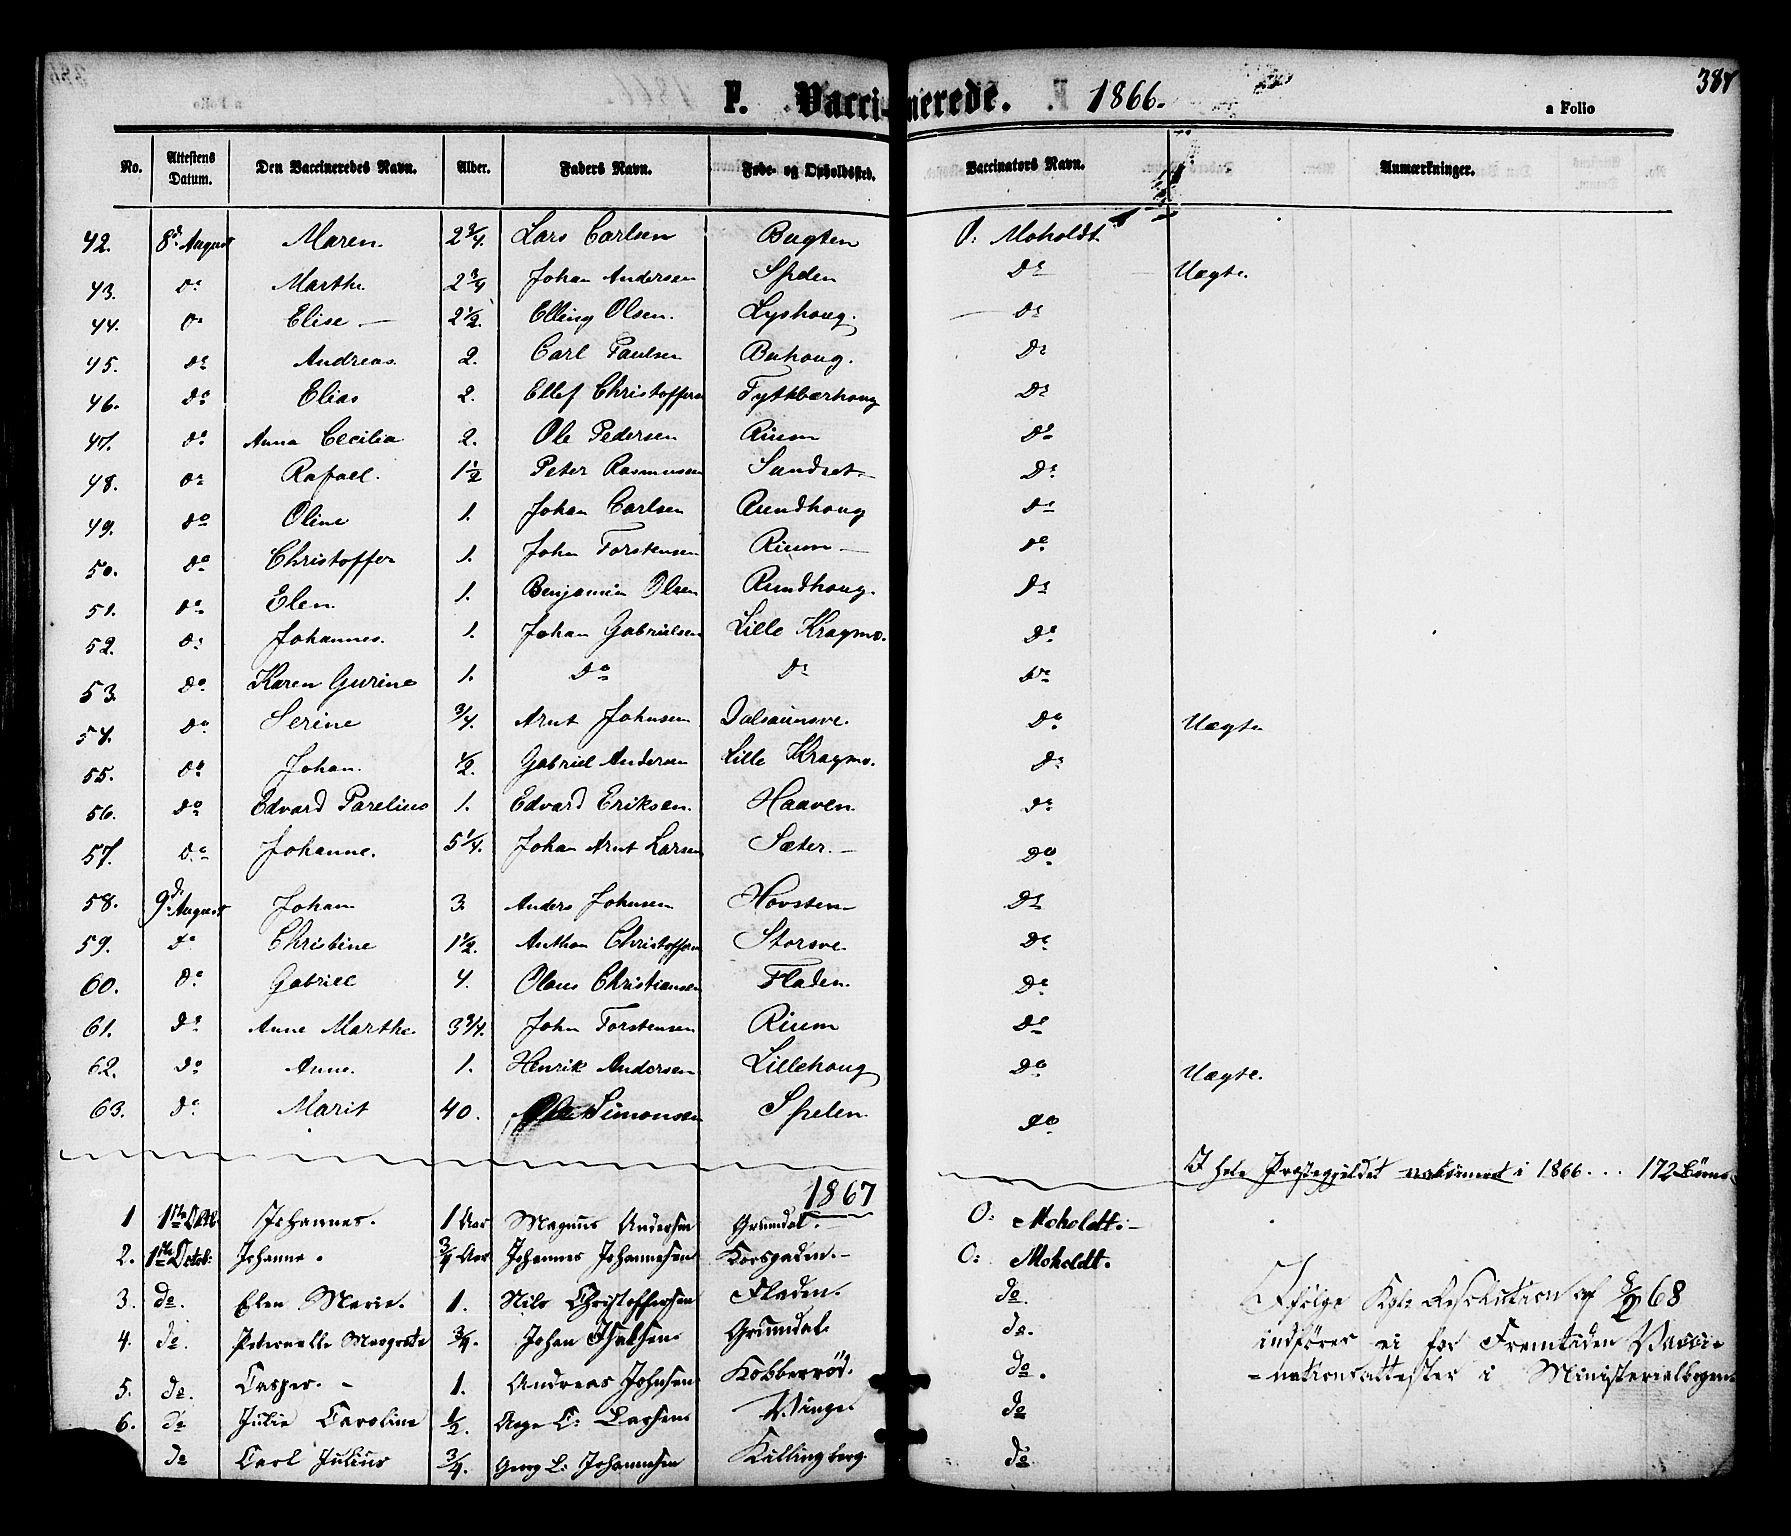 387
F. Vaccinerede. 1866.
a Folio
No. Attestens Datum. Den Vaccineredes Navn. Alder. Faders Navn. Føde- og Opholdssted. Vaccinators Navn. Anmærkninger.
42. 8d August Maren 2 3/4. Lars Carlsen Bugten O: Moholdt
43. do Marthe 2 3/4 Johan Andersen Spelen do Uægte.
44. do Elise 2 1/2. Elling Olsen. Lyshoug. do
45. do Andreas 2. Carl Paulsen Buhoug. do
46. do Elias 2. Ellef Christoffersen Tyttbærhoug do
47. do Anna Cecilia 2. Ole Pedersen Rium do
48. do Rafael. 1 1/2 Peter Rasmussen Sandset do
49. do Oline 1. Johan Carlsen Rundhoug do
50. do Christoffer 1. John Torstensen Rium do
51. do Elen. 1. Benjamin Olsen Rundhoug. do
52. do Johannes. 1. Johan Gabrielsen Lille Kragmo. do
53. do Karen Gurine 1. do do do
54. do Serine 3/4. Arnt Johnsen Dalsaunsve. do Uægte
55. do Johan. 1/2. Gabriel Andersen Lille Kragmo. do
56. do Edvard Parelius 1. Edvard Eriksen. Haaven do
57. do Johanne. 5 1/4. Johan Arnt Larsen Sæter. do
58. 9d August Johan 3. Anders Johnsen Hovsten do
59. do Christine 1 1/2. Anthon Christoffersen Storsve. do
60. do Gabriel 4. Olaus Christiansen Fladen. do
61. do Anne Marthe. 3 3/4. John Torstensen Rium do
62. do Anne. 1. Henrik Andersen Lillehoug do Uægte.
63. do Marit 40. Ole Simonsen Spelen do
I hele Præstegjeldet vakcineret i 1866... 172 Børn
1867
1 1ste Octbr Johannes. 1 Aar Magnus Andersen Grundal. O: Moholdt.
2. 1ste Octob: Johanna. 3/4 Aar Johannes Johannesen Korsgaden. O: Moholdt.
3. do. Elen Marie. 1. Nils Christoffersen Fladen. do.
Ifølge Kgl. Resolution af 68
4. do. Peternelle Margrete 3/4. Johan Isaksen Grundal do.
indføres ei for Fremtiden Vacci-
5. do. Casper. 1. Andreas Johnsen Kobberrød. do.
-nationsattester i Ministerialbogen
6. do Julie Caroline 1/2. Aage C: Larsen Vinge. do
do Carl Julius 3/4. Georg L: Johannesen Killingberg. do.